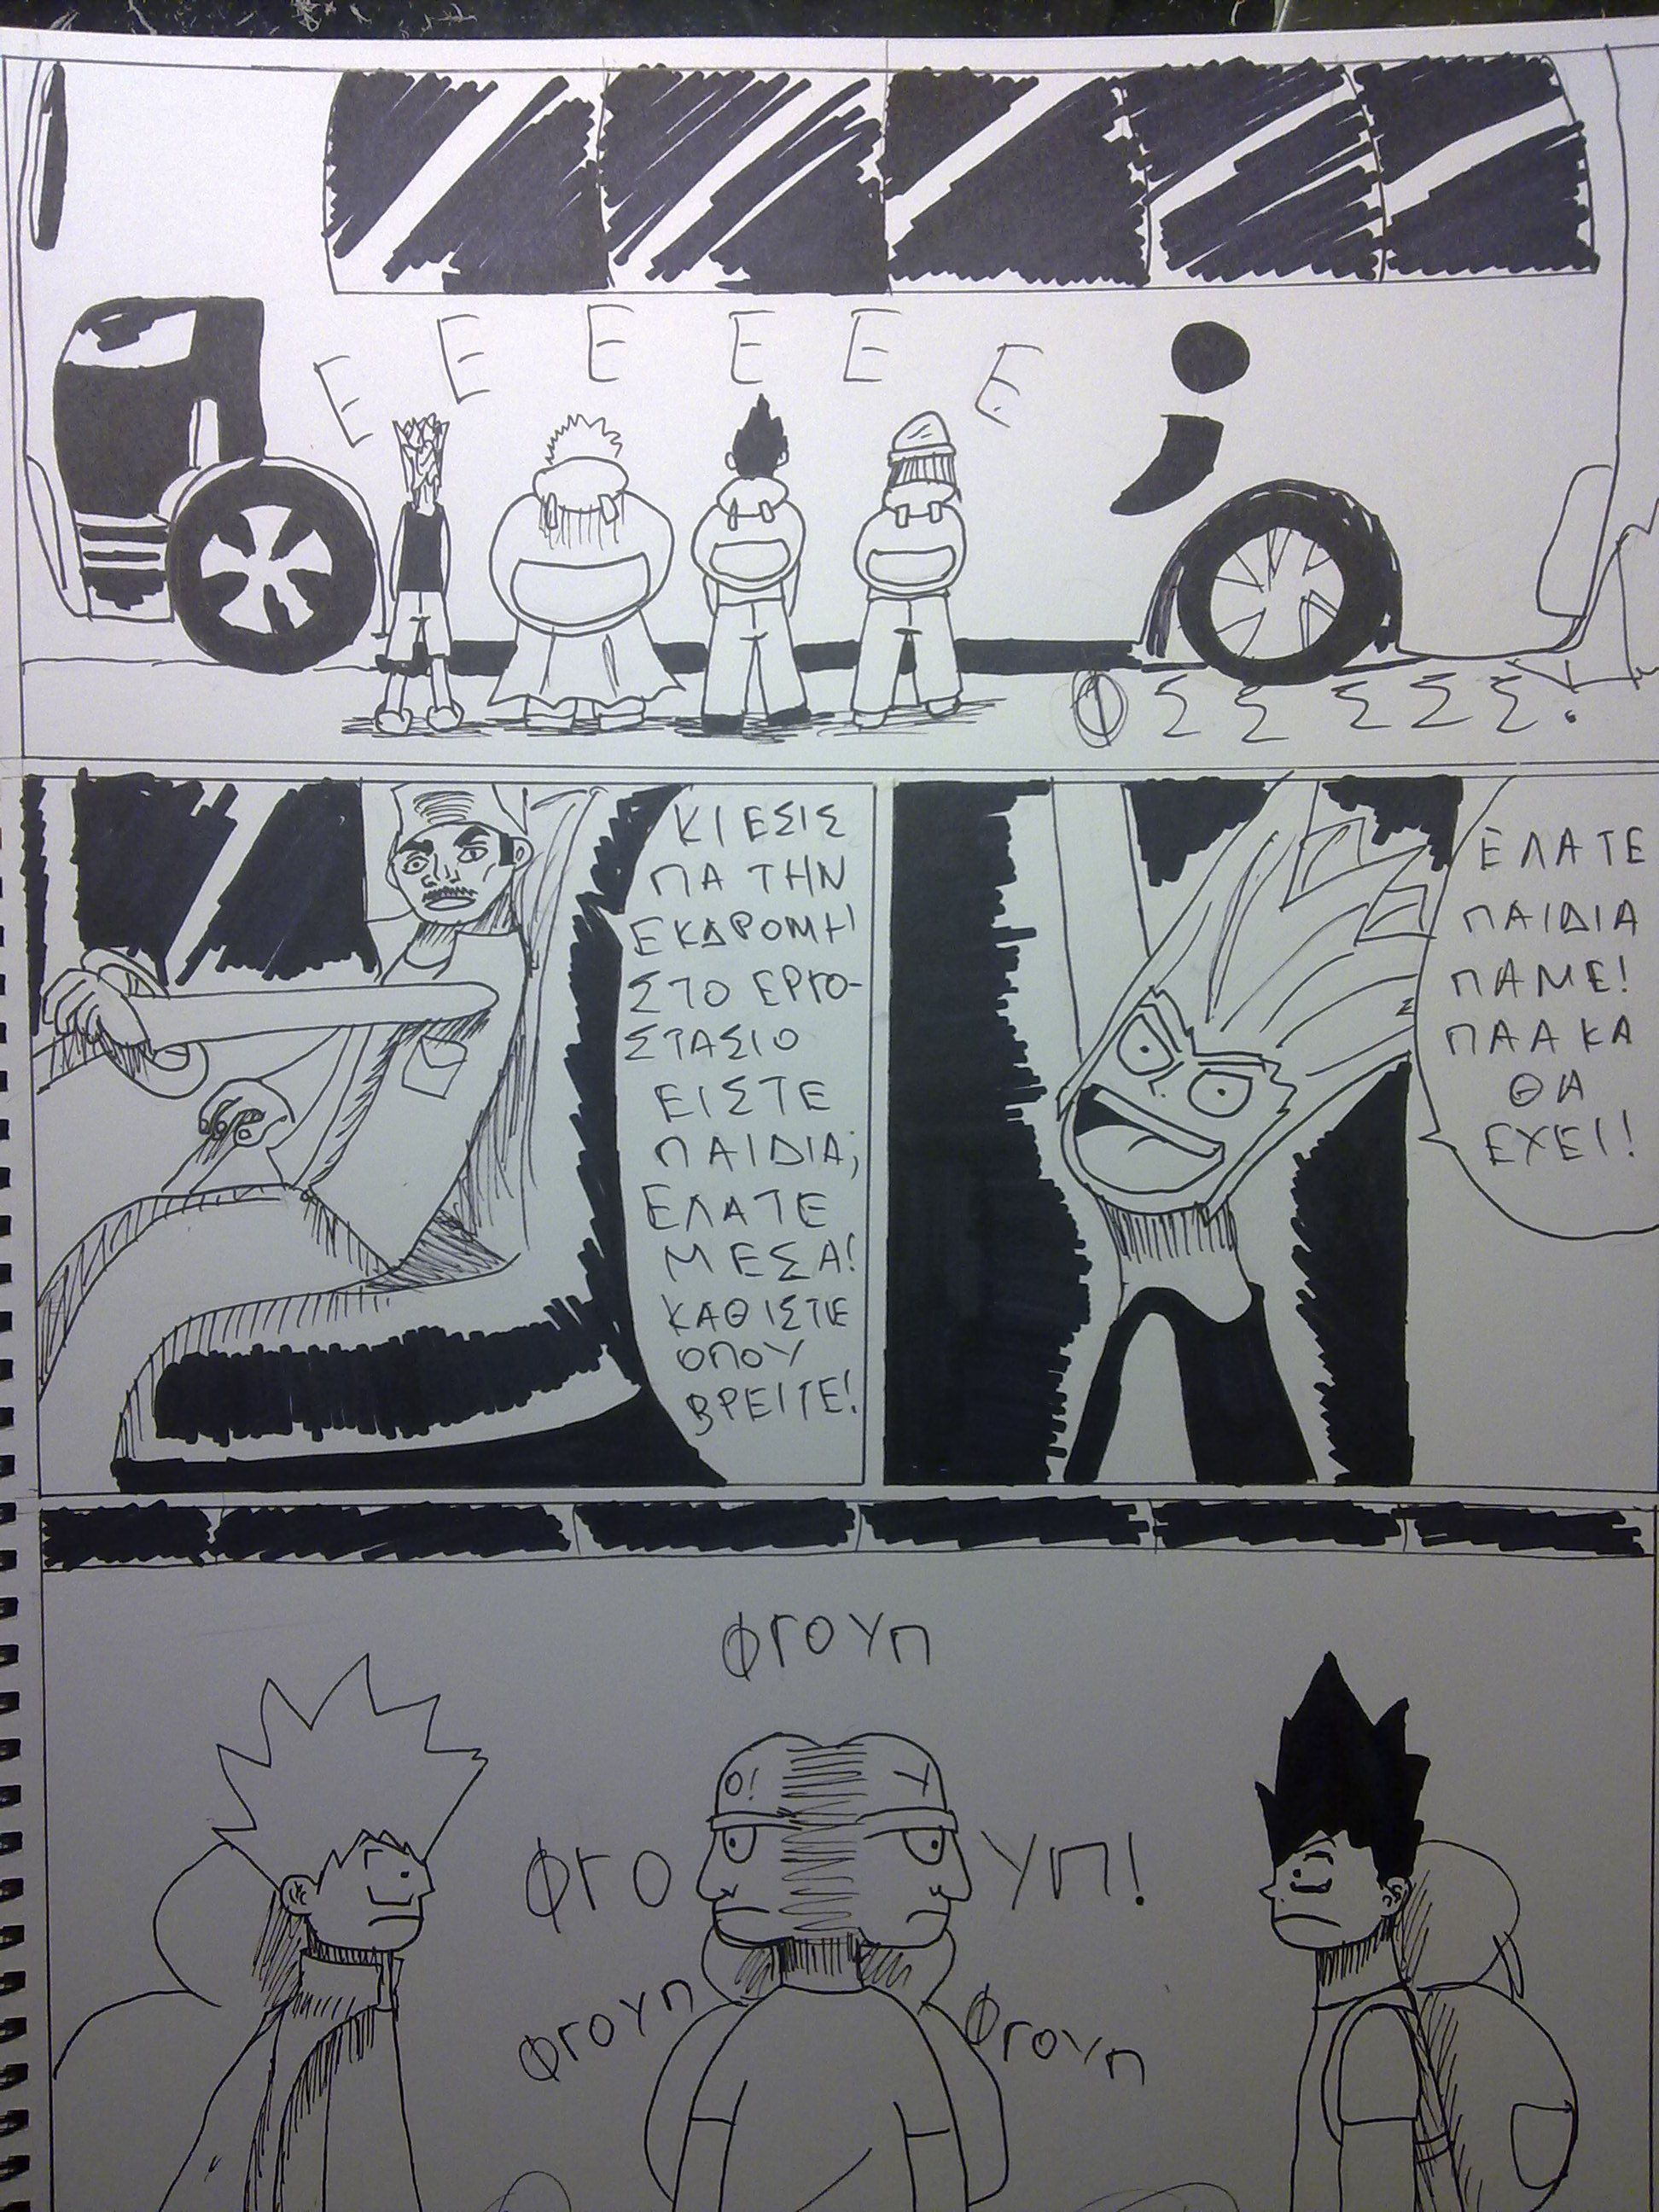 Ε Ε Ε Ε Ε Ε
;
ΦΣΣΣΣΣ!
ΚΙ ΕΣΙΣ
ΠΑ ΤΗΝ
ΕΚΔΡΟΜΗ
ΣΤΟ ΕΡΓΟ-
ΣΤΑΣΙΟ
ΕΙΣΤΕ
ΠΑΙΔΙΑ;
ΕΛΑΤΕ
ΜΕΣΑ!
ΚΑΘΙΣΤΕ
ΟΠΟΥ
ΒΡΕΙΤΕ!
ΕΛΑΤΕ
ΠΑΙΔΙΑ
ΠΑΜΕ!
ΠΛΑΚΑ
ΘΑ
ΕΧΕΙ!
ΦΓΟΥΠ
Ο! Υ
ΦΓΟ ΥΠ!
ΦΓΟΥΠ ΦΓΟΥΠ